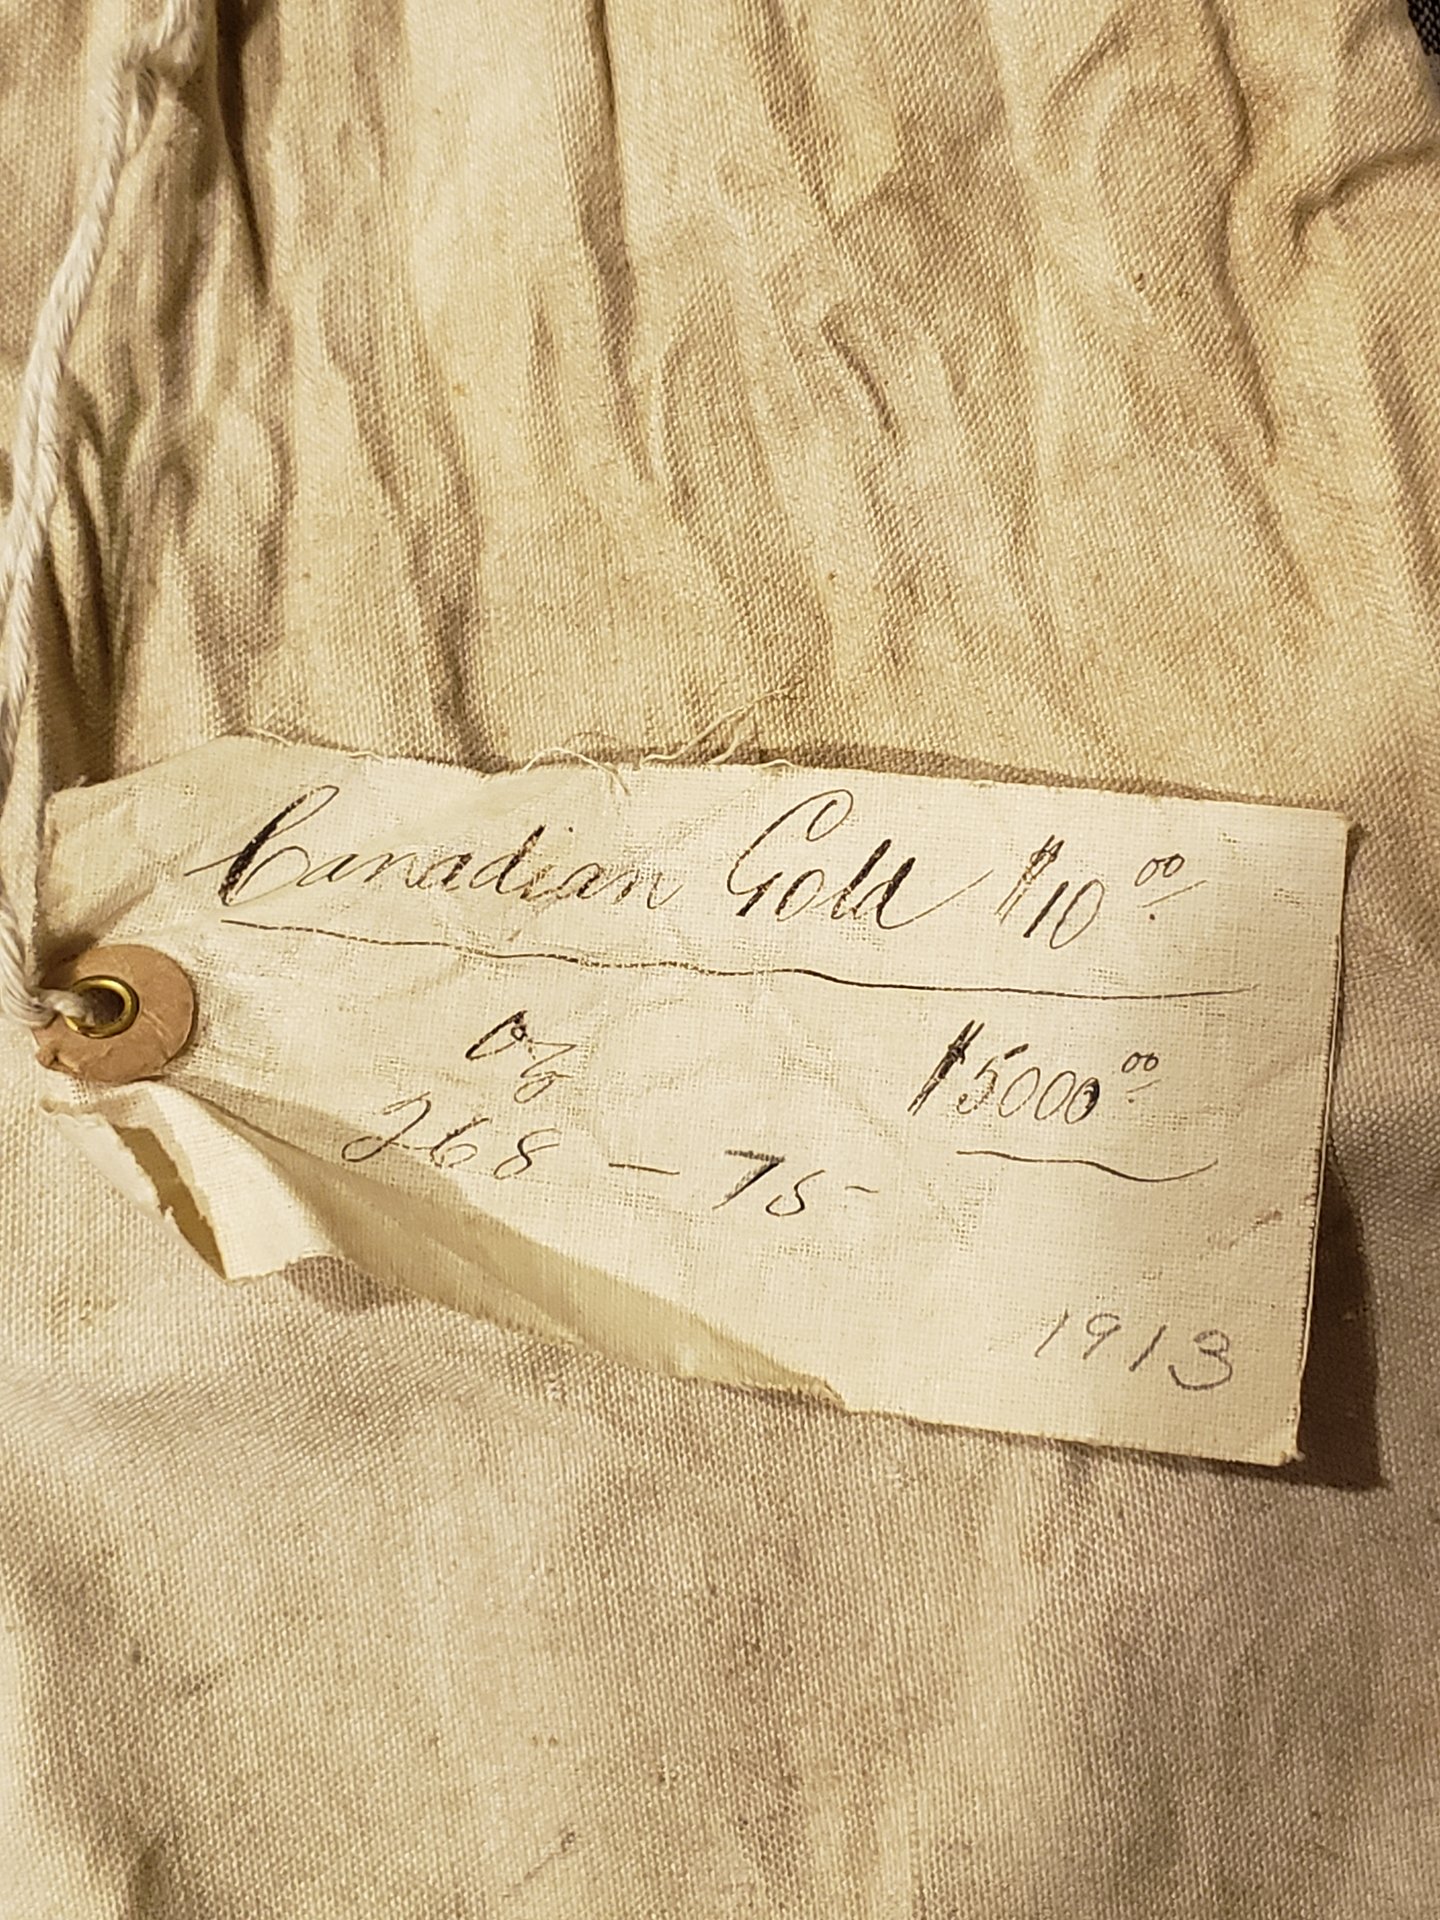 Canadian Gold $10.00
oz $5000.00
268 — 75
1913